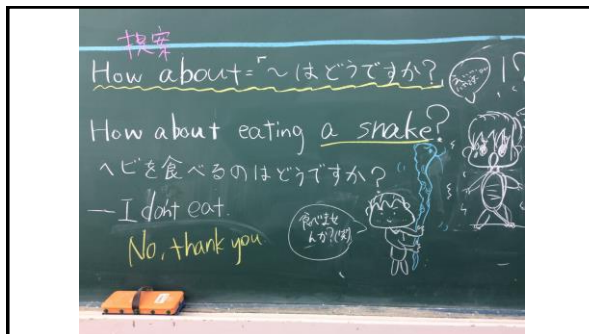 提案
How about=「~はどうですか?」
!?
How about eating a snake?
ヘビを食べるのはどうですか?
— I don't eat.
No, thank you
食べませ
んか?(笑)